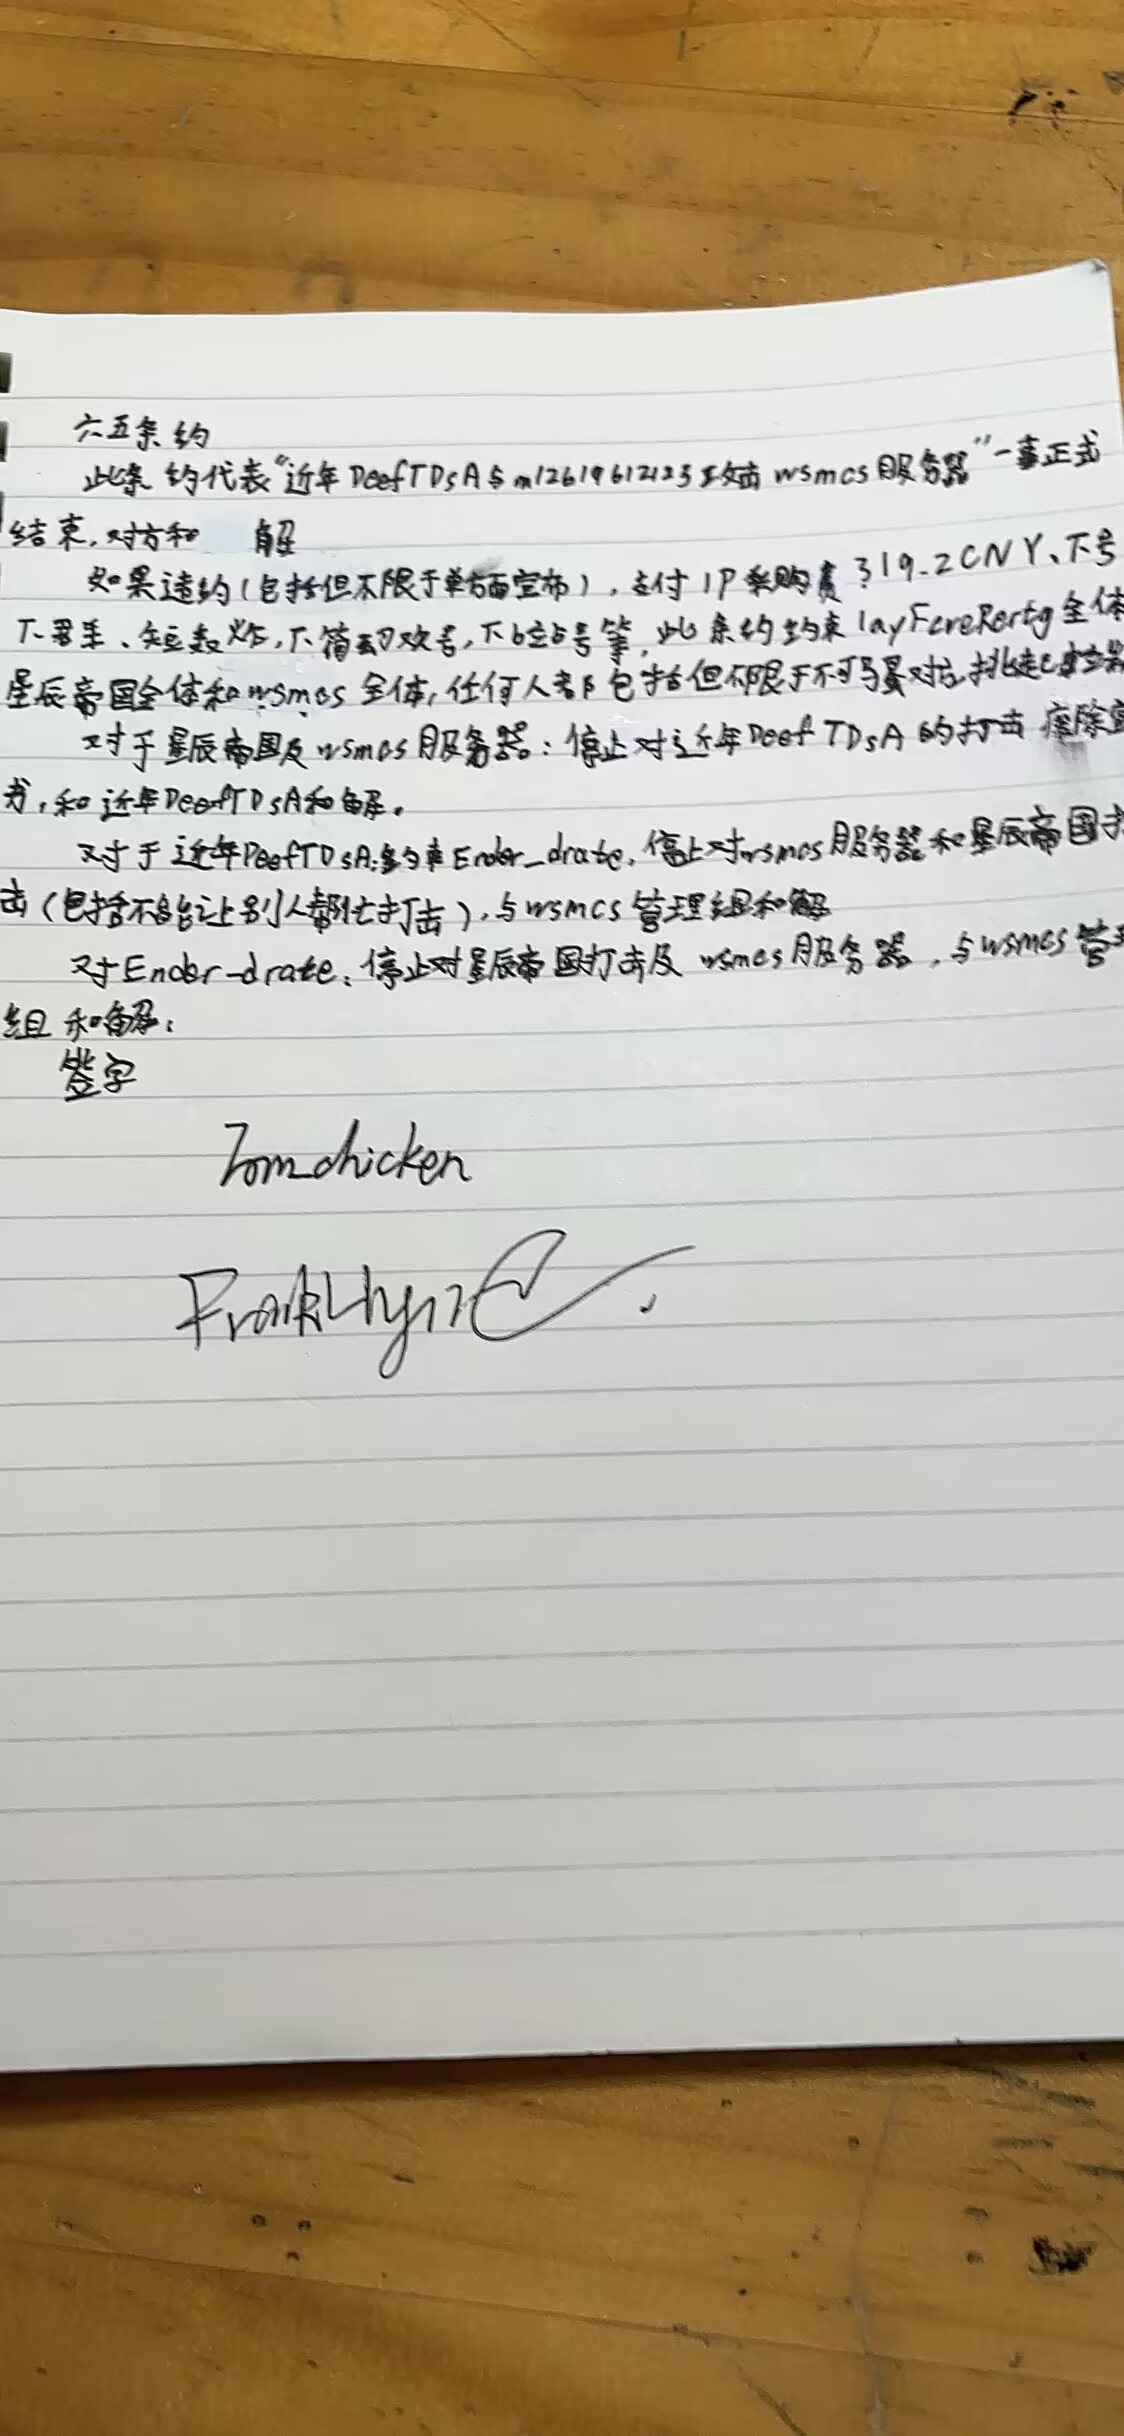 六五条约
此条约代表“近年DeefTDsA与m12619612123攻击wsmcs服务器”一事正式
结束,对方和 解
如果违约(包括但不限于单方面宣布),支付IP采购费319.2CNY、下号
下署车、短数炸,下筒切效号,下b站号等,此条约约束layFcreRertg全体
星辰帝国全体和wsmcs全体,任何人都包括但不限于不可 对
对于星辰帝国及wsmcs服务器:停止对近年DeefTDsA的打击 废除宣
书,和近年DeefTDsA和解。
对于近年DeefTDsA:约束Ender_drate,停止对wsmcs服务器和星辰帝国打
击(包括不能让别人帮忙打击),与wsmcs管理组和解
对Ender-drate:停止对星辰帝国打击及wsmcs服务器,与wsmcs管理
组和解:
签字
Tom_chicken